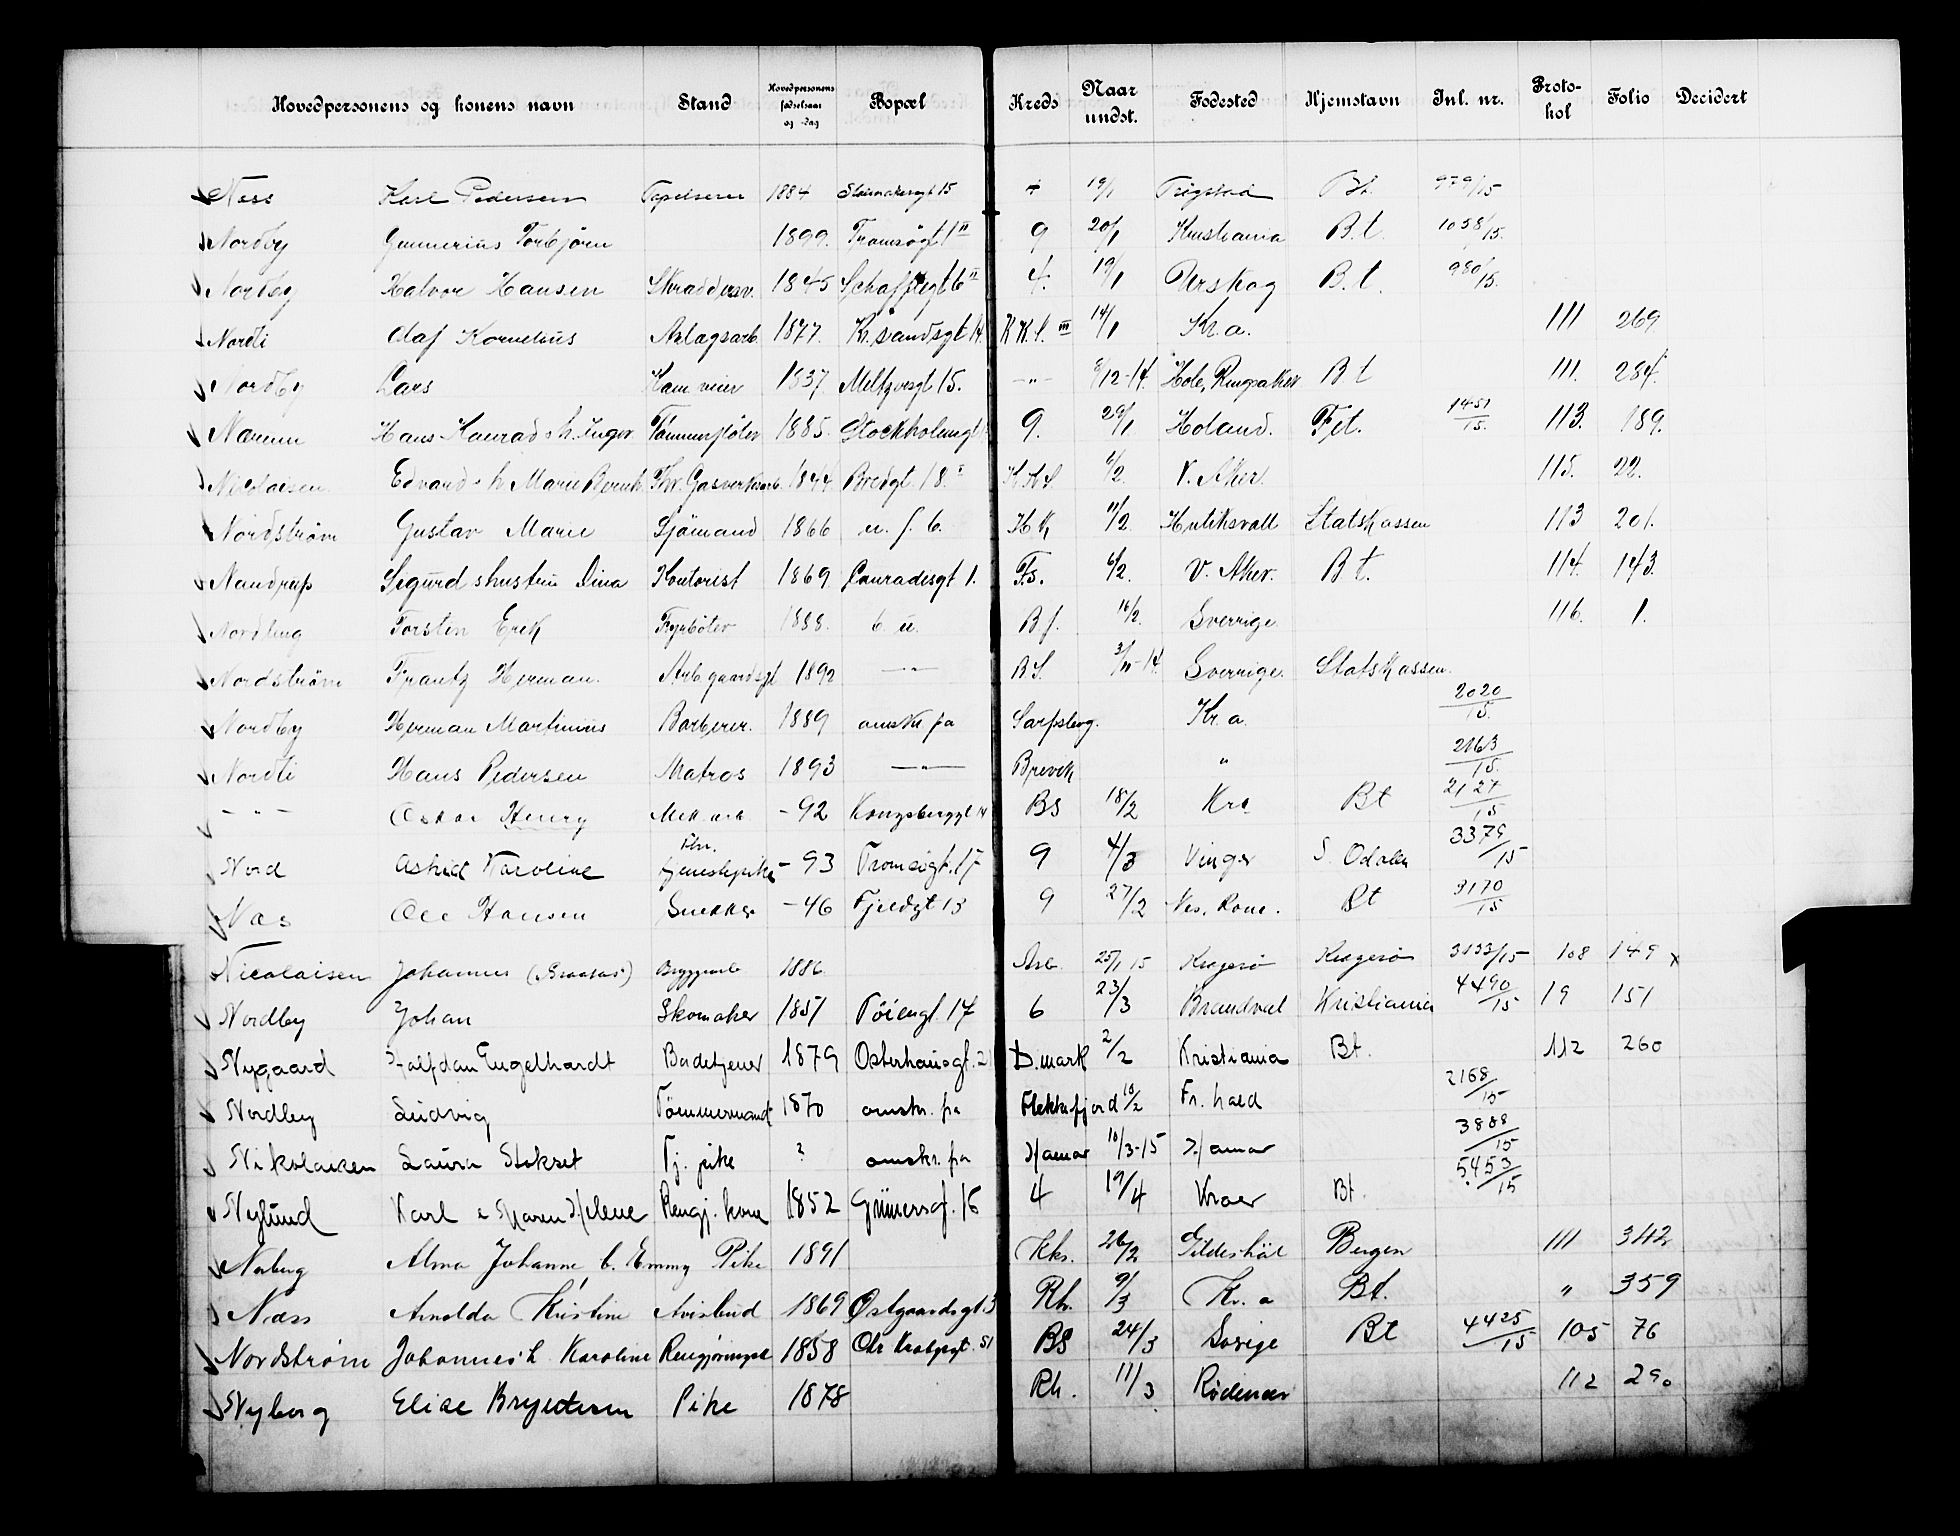 Hovedpersonens og konens navn Stand Hovedpersonens fødselsaar og -dag Bopæl Kreds Naar undst. Fødested Hjemstavn Inl. nr. Proto-kol Folio Decidert
Ness Karl Pedersen 1884 15 19/1 Bt. 979/15
Nordby Gunnerius Torbjørn 1899. Tromsögt. 1 II 9 20/1 Kristiania B.t. 1058/15.
Nordby Halvor Hansen 1845 6 II 4. 19/1 Urskog B.t. 980/15.
Nordli Olaf Kornelius 1877. Kr.sandsgt 14. K.K.S. III 14/1 Kr.a. 111 269.
Nordby Lars 1837. Meltzersgt 15. -"- 8/12-14. Hole, Ringsaker Bt 111. 284.
Hans Konrad h. Inger 1885. Stockholmsgt 9. 29/1 Höland. Fet. 1451/15. 113. 189.
Nicolaisen Edvard h Marie 1844. Bredgt. 18. I 6/2. V. Aker. 115. 22.
Nordström Gustav Marie Sjömand 1866 u. f. b. 11/2. Hutiksvall Statskassen 113 201.
Nandrup Sigurd Dina Kontorist 1869. Conradisgt 1. Fs. 6/2. V. Aker. Bt. 114. 143.
Nordling Torsten Erik Fyrböter 1888. b. u. B f. 16/2. Sverrige. 116. 1.
Nordström Frantz Herman. 1892 -"- B S. Sverrige. Statskassen.
Nordby Herman Martinius Barberer. 1889 omskr fra Sarpsborg. Kr.a. 2020/15.
Nordli Hans Pedersen Matros 1893 -"- Brevik " 2163/15.
-"- Oskar Henry Mek. arb. -92 Kongsberggt 14 BS 18/2 Kra Bt 2127/15
Nord Astrid Karoline tjenestepike -93 Tromsögt. 17 9 4/3 Vinger S. Odalen 3379/15
Næs Ole Hansen Snekker -46 Fjeldgt 13 9 27/2 Nes, Rome. Bt 3170/15
Nicolaisen Johannes Bryggearb 1886. Arb. 25/1 15 Kragerö Kragerö 3133/15 108 149 x
Nordby Johan Skomaker 1851 Töiengt. 17 6 23/3 Brandval Kristiania 4490/15 19 151
Nygaard Halfdan Engelhardt Badetjener 1879 Osterhausgt. 2 D.mark 2/2 Kristiania Bt. 112 260
Nordby Ludvig Tömmermand 1870 omskr. fra Flekkefjord 10/2 Fr. hald 2168/15
Nikolaisen Laura Stokset Tj. pike ? omskr. fra Hamar 10/3-15 Hamar 3888/15
Nylund Karl & Maren Helene Rengj. kone 1852 Grünersgt. 16 4 19/4 Kroer Bt. 5453/15
Norberg Alma Johanne b. Emmy Pike 1891 Kks. 26/2 Gildeskål Bergen 111 342
Næss Arnolda Kristine Avisbud 1869 Østgaardsgt. 3 Rh. 9/3 Kr.a Bt. " 359
Nordstrøm Johannes h. Karoline 1858 Chr Krohgsgt. 51 BS 24/3 Sverige Bt 4425/15 105 76
Nyborg Elise Pike 1878 Rh. 11/3 Rødenes 112 290